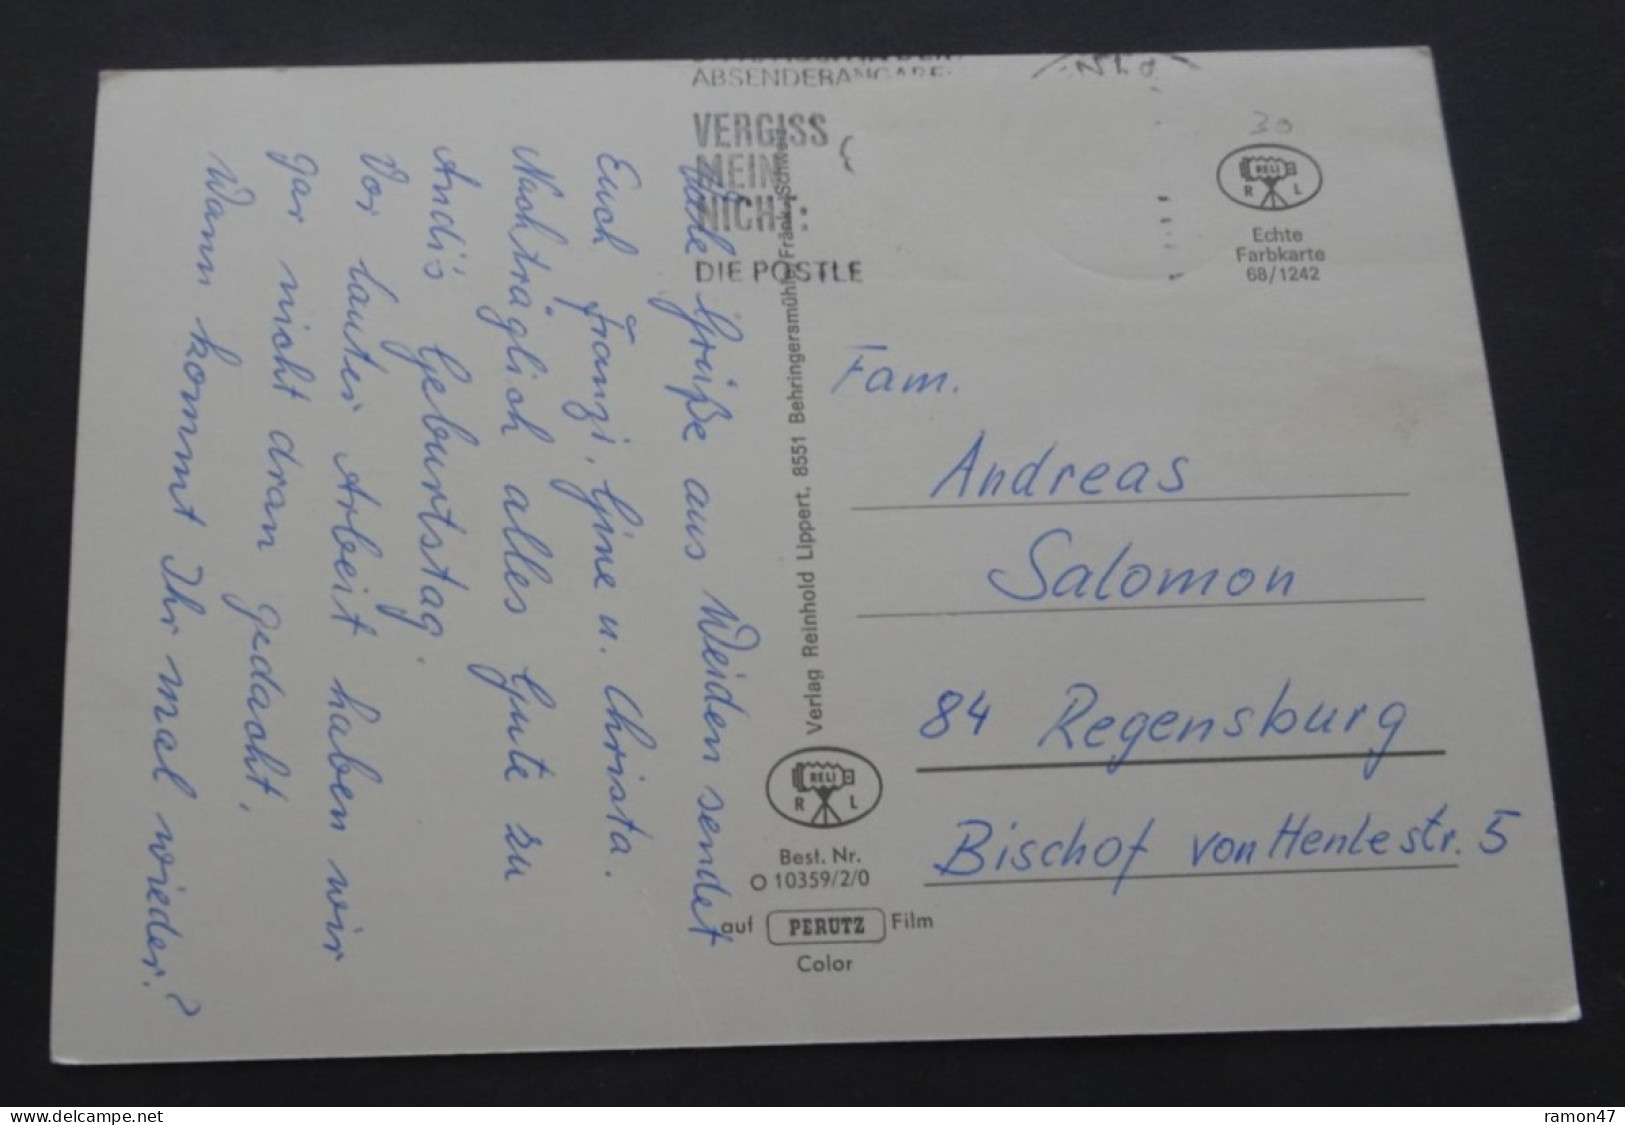 ABSENDERANGABE:
VERGISS
MEIN
NICHT:
DIE POSTLE
30
RELI
R L
Echte
Farbkarte
68/1242
Viele Grüße aus Weiden sendet
Euch Franzi, Gine u. Christa.
Nachträglich alles Gute zu
Andi's Geburtstag.
Vor lauter Arbeit haben wir
gar nicht dran gedacht.
Wann kommt Ihr mal wieder?
Verlag Reinhold Lippert, 8551 Behringersmühle/Fränk. Schweiz
Fam.
Andreas
Salomon
84 Regensburg
Bischof von Henlestr. 5
RELI
R L
Best. Nr.
O 10359/2/0
auf PERUTZ Film
Color
delcampe.net
ramon47